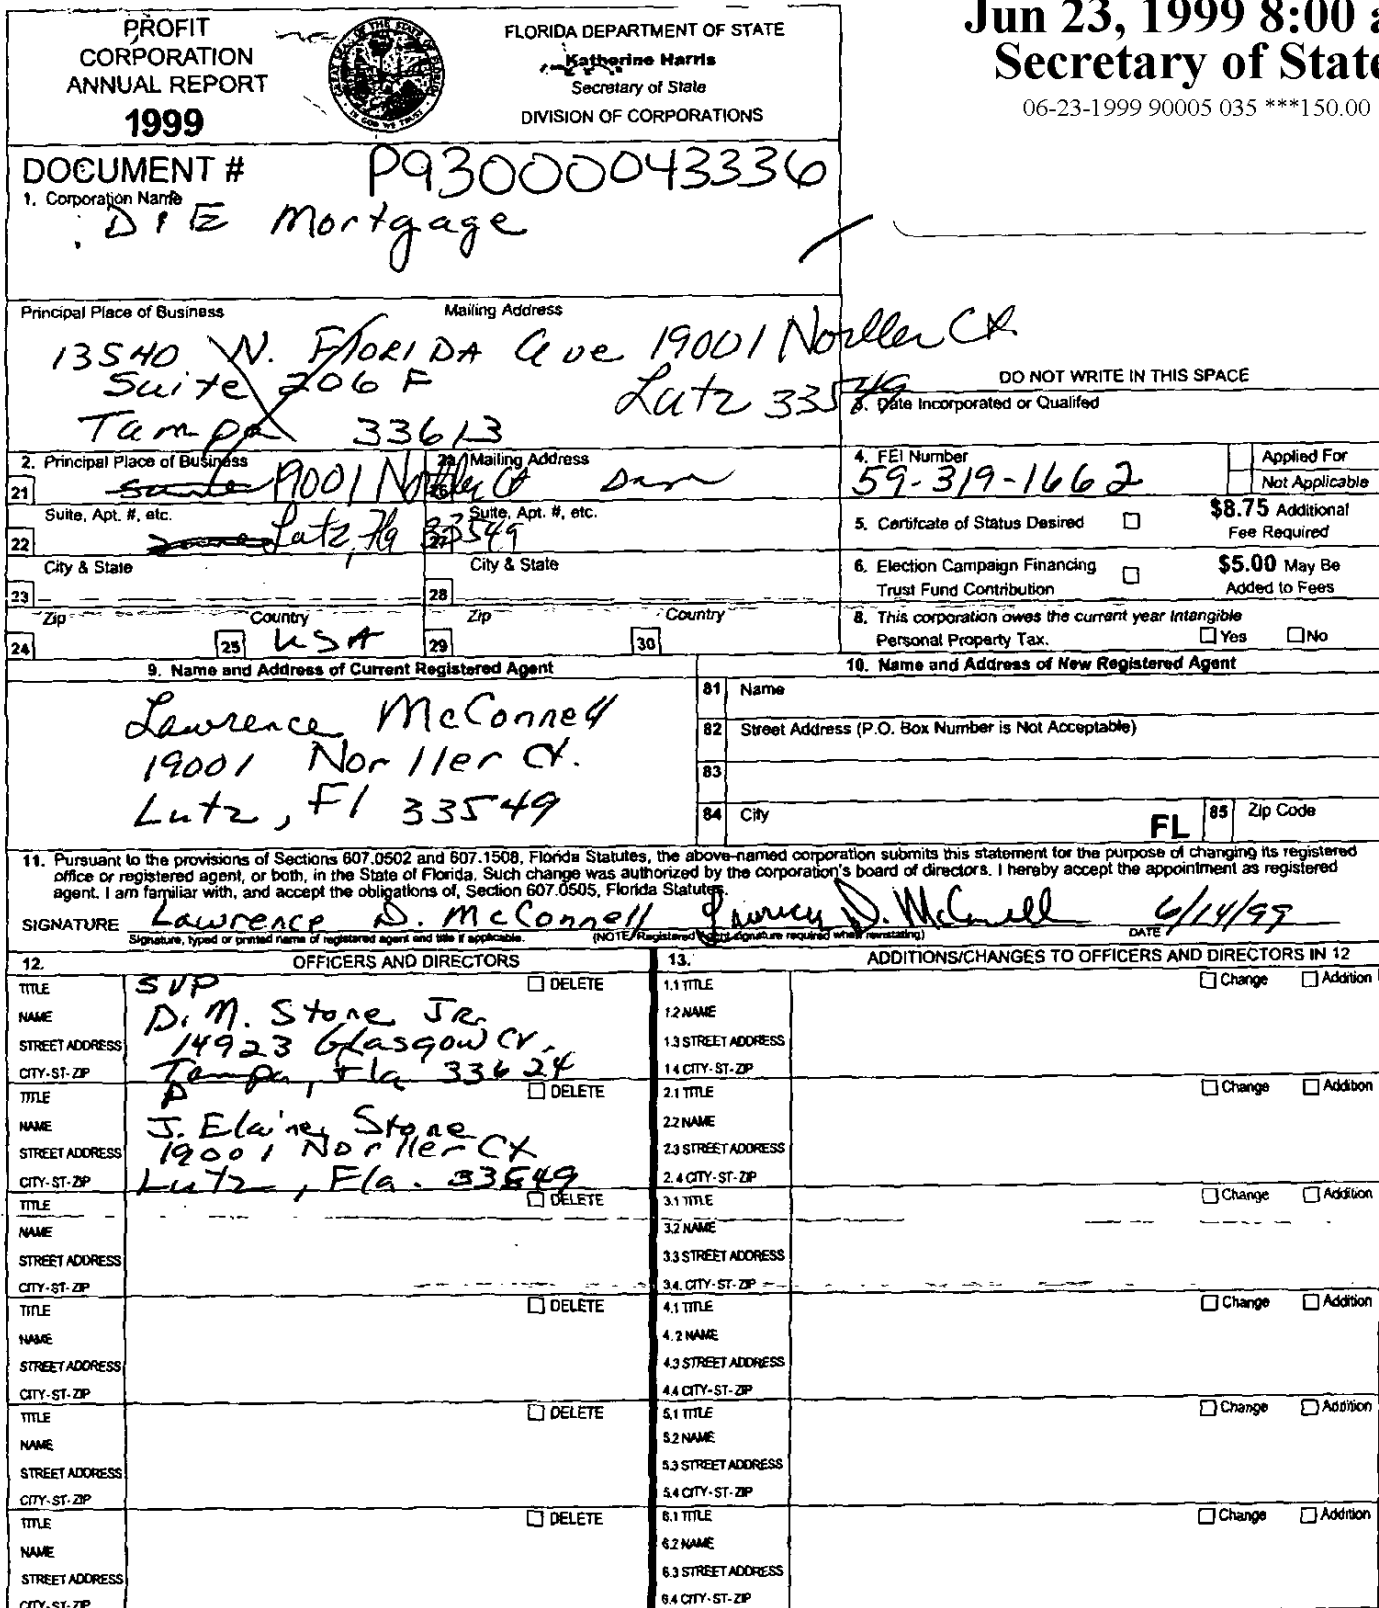 PROFIT
CORPORATION
ANNUAL REPORT
1999
FLORIDA DEPARTMENT OF STATE
Katherine Harris
Secretary of State
DIVISION OF CORPORATIONS
Jun 23, 1999 8:00 a
Secretary of State
06-23-1999 90005 035 ***150.00
DOCUMENT # P93000043336
1. Corporation Name
D & E Mortgage
Principal Place of Business Mailing Address
13540 N. FLORIDA Ave 19001 Norller Ct
Suite 206 F Lutz 33549
Tampa 33613
DO NOT WRITE IN THIS SPACE
3. Date Incorporated or Qualifed
2. Principal Place of Business 2a. Mailing Address
21 19001 Norller Ct 26
Suite, Apt. #, etc. Suite, Apt. #, etc.
22 Lutz, Fla 33549 27
City & State City & State
23 28
Zip Country Zip Country
24 25 USA 29 30
4. FEI Number Applied For
59-319-1662 Not Applicable
5. Certifcate of Status Desired $8.75 Additional
Fee Required
6. Election Campaign Financing $5.00 May Be
Trust Fund Contribution Added to Fees
8. This corporation owes the current year Intangible
Personal Property Tax. Yes No
9. Name and Address of Current Registered Agent
Lawrence McConnell
19001 Norller Ct.
Lutz, Fl 33549
10. Name and Address of New Registered Agent
81 Name
82 Street Address (P.O. Box Number is Not Acceptable)
83
84 City FL 85 Zip Code
11. Pursuant to the provisions of Sections 607.0502 and 607.1508, Florida Statutes, the above-named corporation submits this statement for the purpose of changing its registered
office or registered agent, or both, in the State of Florida. Such change was authorized by the corporation's board of directors. I hereby accept the appointment as registered
agent. I am familiar with, and accept the obligations of, Section 607.0505, Florida Statutes.
SIGNATURE Lawrence D. McConnell Lawrence D. McConnell 6/14/99
Signature, typed or printed name of registered agent and title if applicable. (NOTE: Registered Agent signature required when reinstating) DATE
12. OFFICERS AND DIRECTORS
TITLE SVP DELETE
NAME D. M. Stone Jr.
STREET ADDRESS 14923 Glasgow Ct.
CITY-ST-ZIP Tampa, Fla 33624
TITLE P DELETE
NAME J. Elaine Stone
STREET ADDRESS 19001 Norller Ct
CITY-ST-ZIP Lutz, Fla. 33549
TITLE DELETE
NAME
STREET ADDRESS
CITY-ST-ZIP
TITLE DELETE
NAME
STREET ADDRESS
CITY-ST-ZIP
TITLE DELETE
NAME
STREET ADDRESS
CITY-ST-ZIP
TITLE DELETE
NAME
STREET ADDRESS
CITY-ST-ZIP
13. ADDITIONS/CHANGES TO OFFICERS AND DIRECTORS IN 12
1.1 TITLE Change Addition
1.2 NAME
1.3 STREET ADDRESS
1.4 CITY-ST-ZIP
2.1 TITLE Change Addition
2.2 NAME
2.3 STREET ADDRESS
2.4 CITY-ST-ZIP
3.1 TITLE Change Addition
3.2 NAME
3.3 STREET ADDRESS
3.4. CITY-ST-ZIP
4.1 TITLE Change Addition
4.2 NAME
4.3 STREET ADDRESS
4.4 CITY-ST-ZIP
5.1 TITLE Change Addition
5.2 NAME
5.3 STREET ADDRESS
5.4 CITY-ST-ZIP
6.1 TITLE Change Addition
6.2 NAME
6.3 STREET ADDRESS
6.4 CITY-ST-ZIP